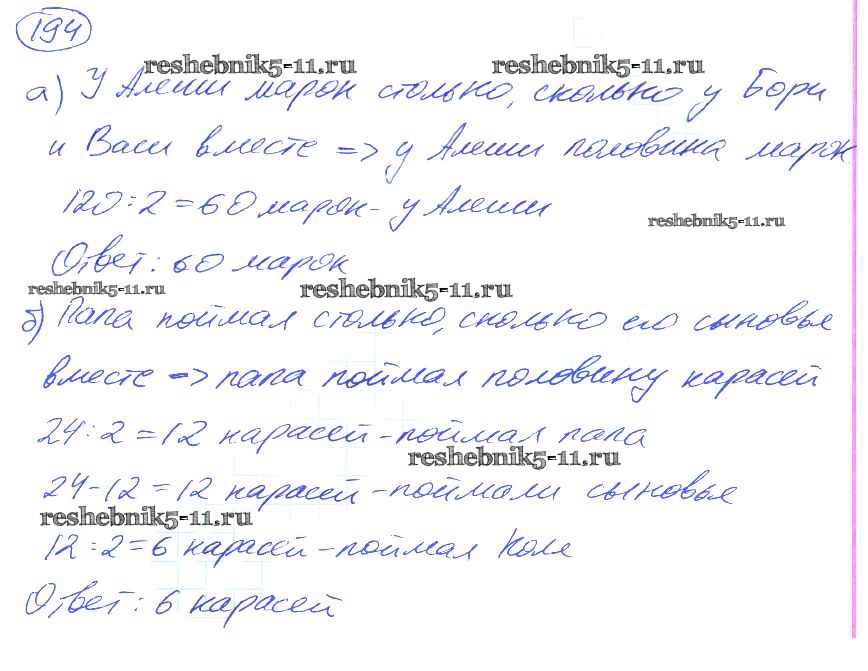 194
reshebnik5-11.ru reshebnik5-11.ru
а) У Алеши марок столько, сколько у Бори
и Васи вместе => у Алеши половина марок
120 : 2 = 60 марок - у Алеши
reshebnik5-11.ru
Ответ: 60 марок
reshebnik5-11.ru reshebnik5-11.ru
б) Папа поймал столько, сколько его сыновья
вместе => папа поймал половину карасей
24 : 2 = 12 карасей - поймал папа
reshebnik5-11.ru
24 - 12 = 12 карасей - поймали сыновья
reshebnik5-11.ru
12 : 2 = 6 карасей - поймал Коля
Ответ: 6 карасей